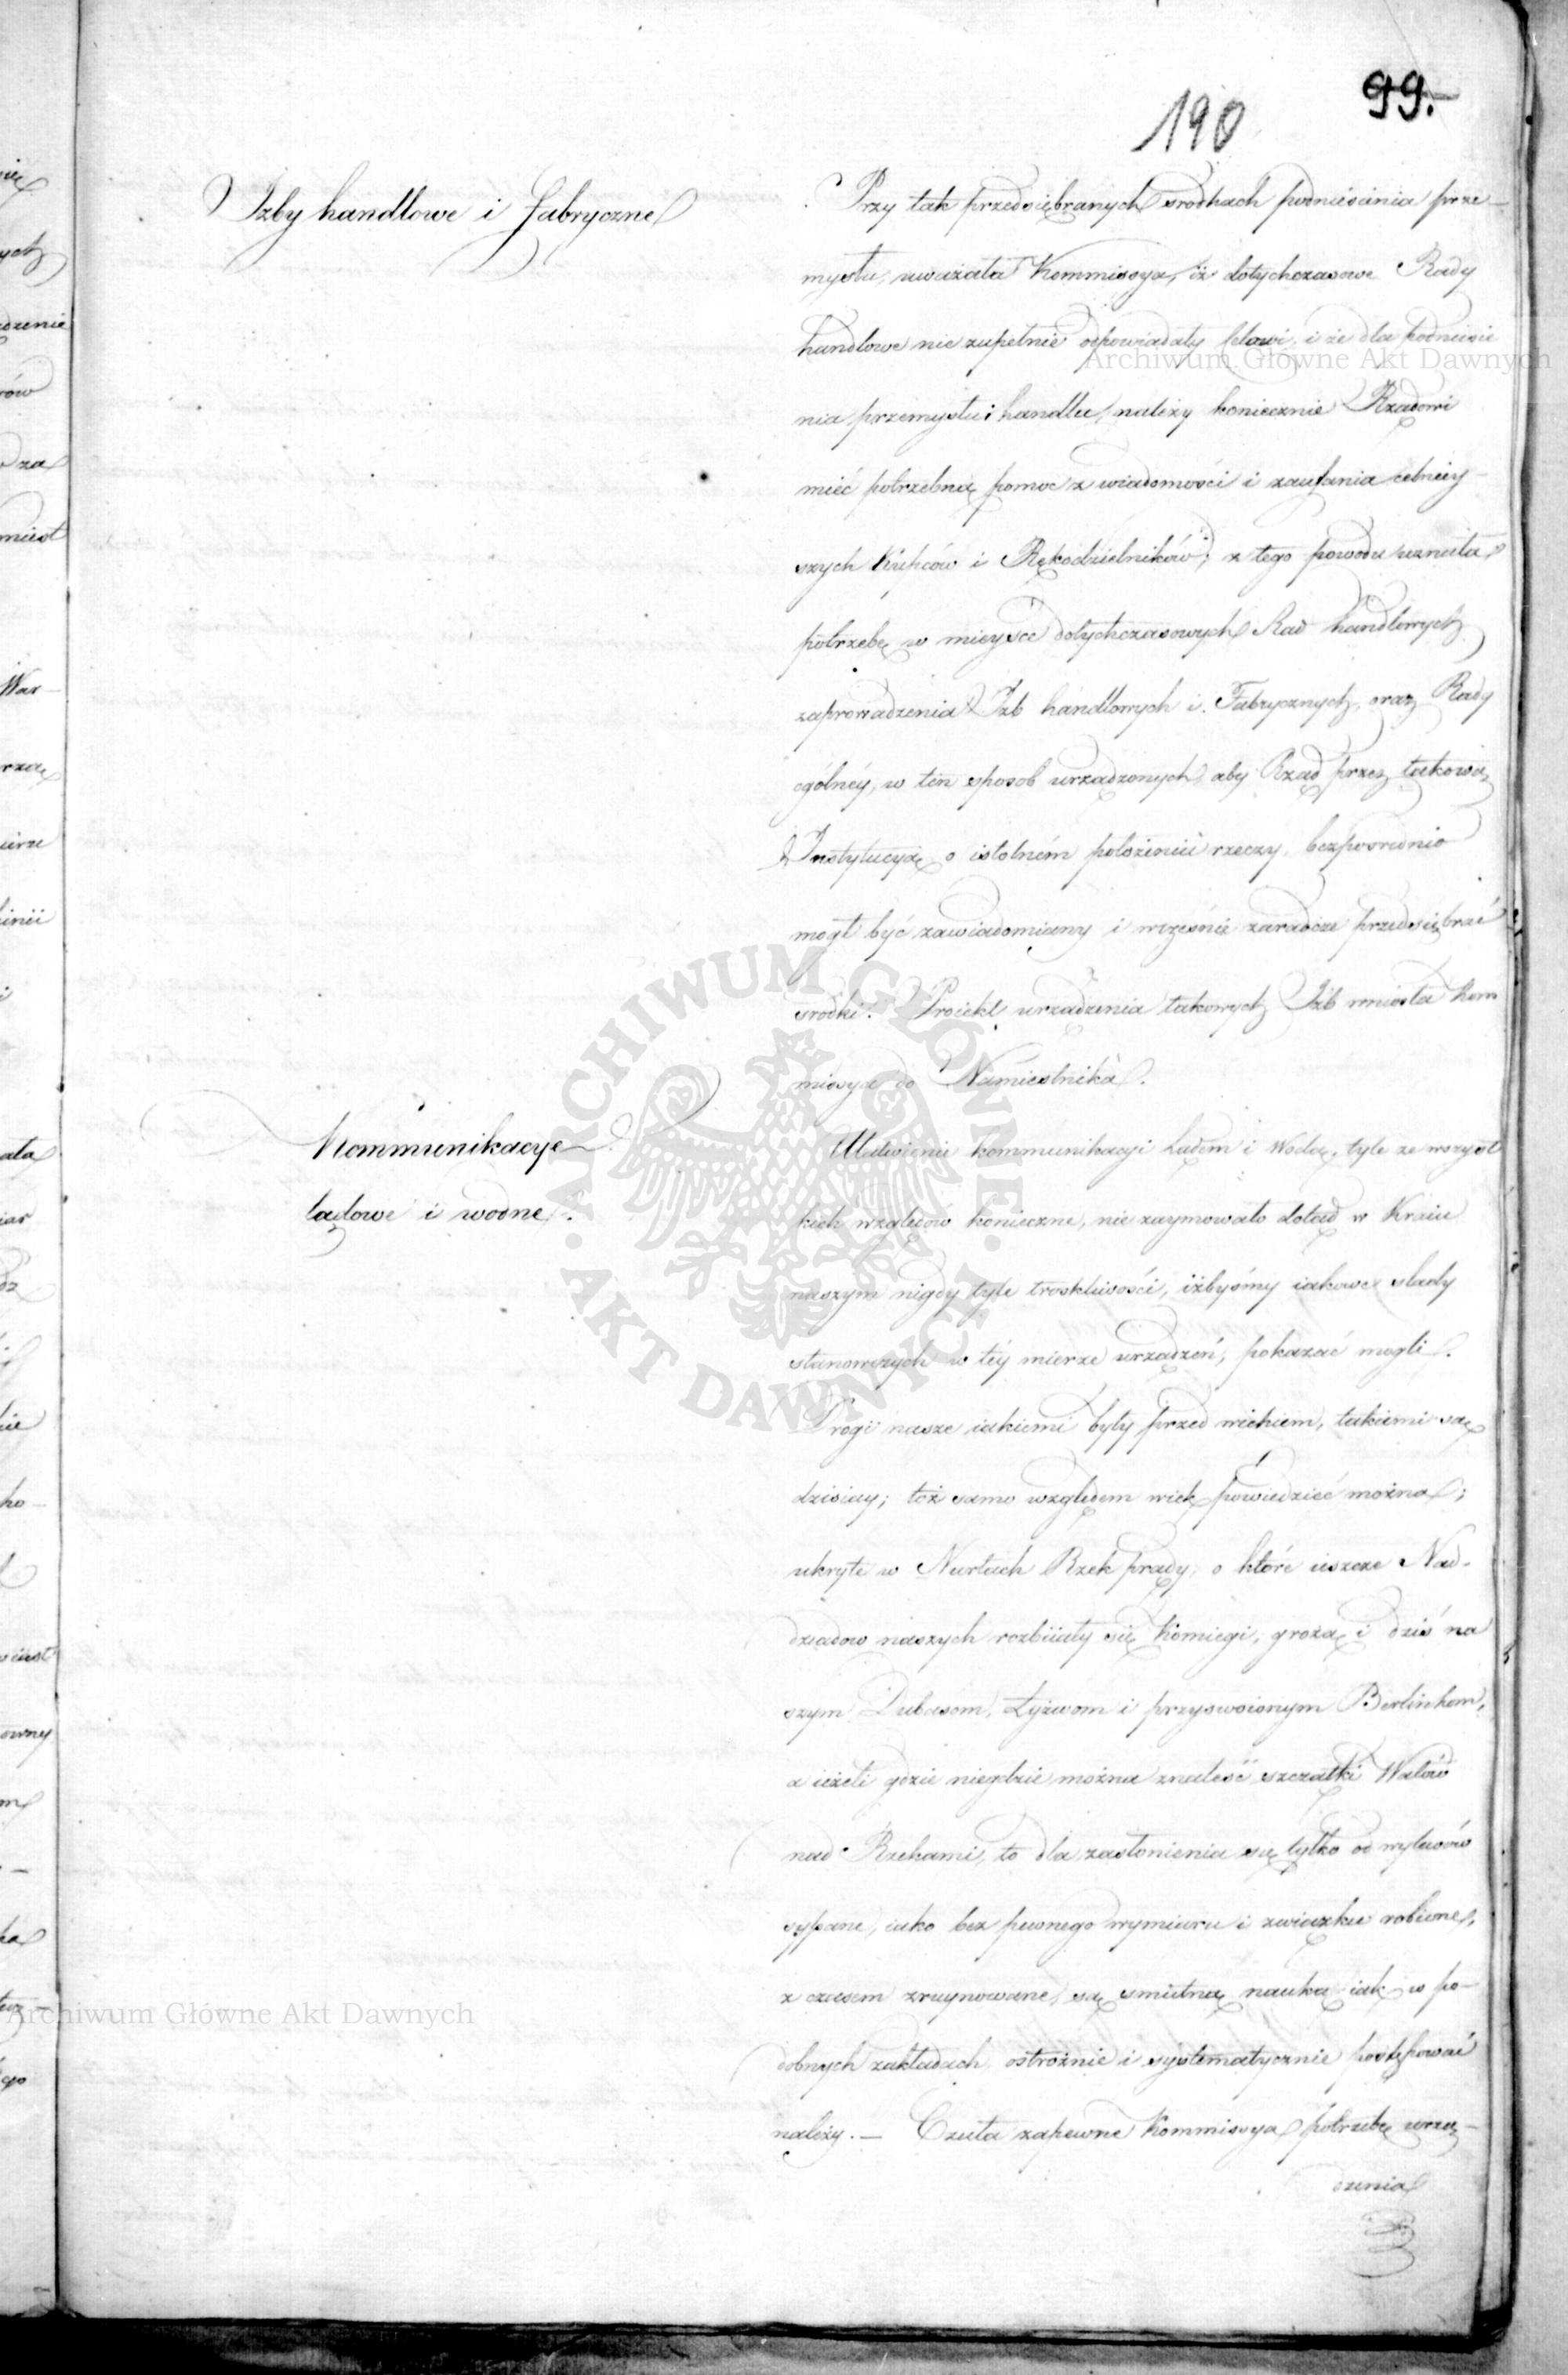 99.
190
Izby handlowe i fabryczne
Przy tak przedsiębranych srodkach podniesienia prze-
mysłu, uważała Kommissya, iż dotychczasowe Rady
handlowe nie zupełnie odpowiadały celowi, i że dla podniesie
nia przemysłu i handlu, należy koniecznie Rządowi
mieć potrzebną pomoc z wiadomości i zaufania celniey-
szych Kupców i Rękodzielników; z tego powodu uznała
potrzebę w mieysce dotychczasowych Rad handlowych
zaprowadzenia Izb handlowych i Fabrycznych, oraz Rady
ogólnéy, w ten sposob urządzonych, aby Rząd przez takową
Instytucyą o istotném położeniu rzeczy bezposrednio
mogł być zawiadomiany i wcześnie zaradcze przedsiębrać
srodki. Proiekt urządzenia takowych Izb wniosła Kom
missya do Namiestnika.
Kommunikacye
lądowe i wodne.
Ułatwienie kommunikacyi Lądem i Wodą, tyle ze wszyst
kich względów konieczne, nie zaymowało dotąd w Kraiu
naszym nigdy tyle troskliwości, iżbyśmy iakowe slady
stanowczych w téy mierze urządzeń, pokazać mogli.
Drogi nasze iakiemi były przed wiekiem, takiemi są
dzisiay; toż samo względem rzek powiedzieć można;
ukryte w Nurtach Rzek prądy, o które ieszcze Nad-
dziadow naszych rozbiiały się Komiegi, grożą i dziś na
szym Dubasom, Łyżwom i przyswoionym Berlinkom,
a ieżeli gdzie niegdzie można znaleść szczątki Wałów
nad Rzekami, to dla zasłonienia się tylko od wylewów
sypane, iako bez pewnego wymiaru i związku robione,
z czasem zruynowane, są smutną nauką iak w po-
dobnych zakładach ostrożnie i systematycznie postępować
należy. — Czuła zapewne Kommissya potrzebę urzą-
dzenia